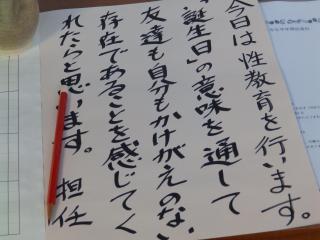 今日は性教育を行います。
「誕生日」の意味を通して
友達も自分もかけがえのない
存在であることを感じてく
れたらと思います。 担任